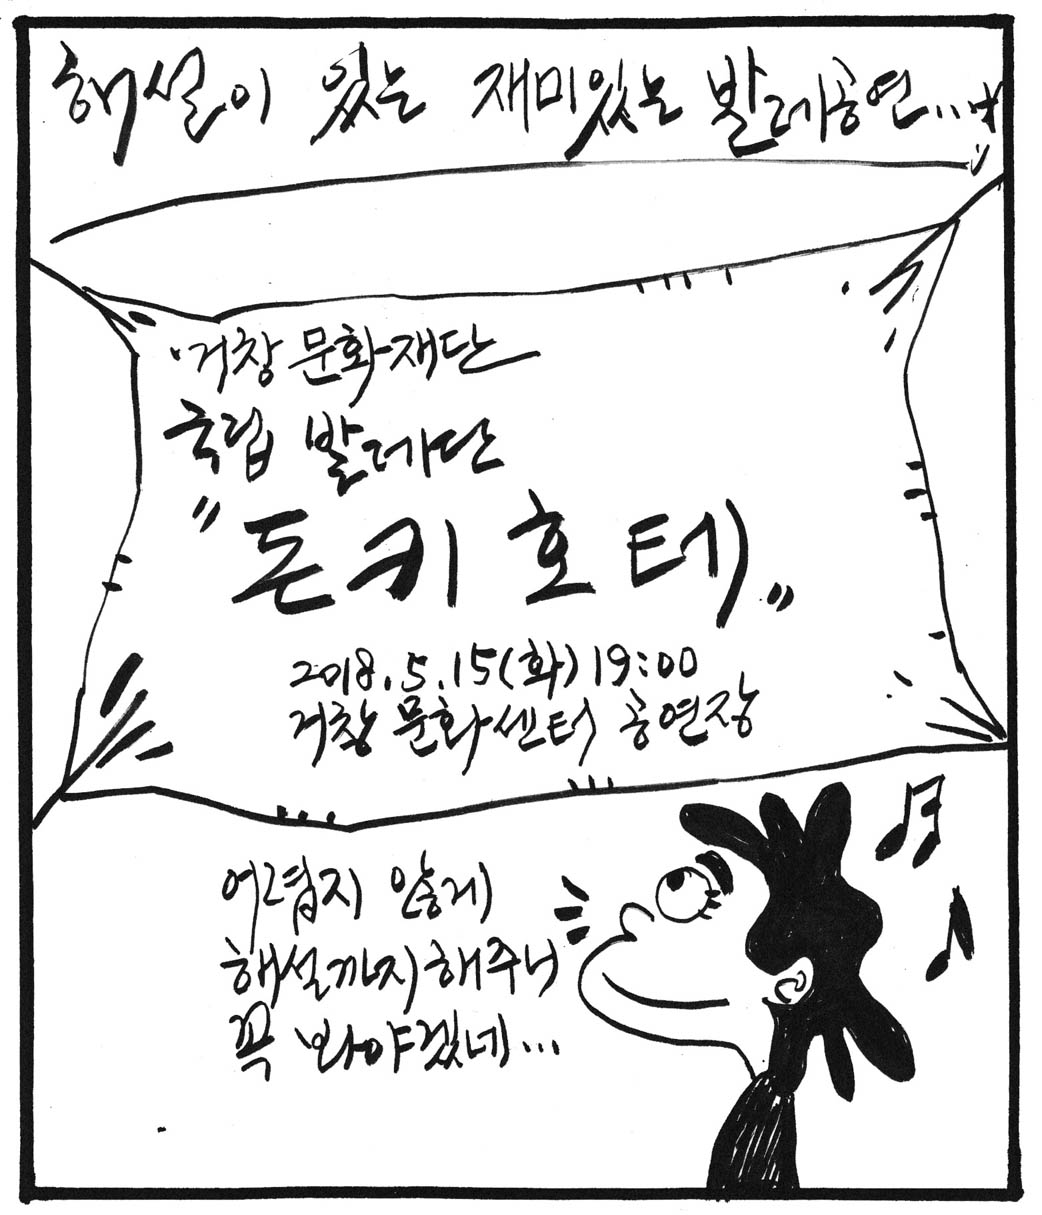 해설이 있는 재미있는 발레공연...
거창 문화재단
국립 발레단
"돈키호테"
2018.5.15(화) 19:00
거창 문화센터 공연장
어렵지 않게
해설까지 해주니
꼭 봐야겠네...